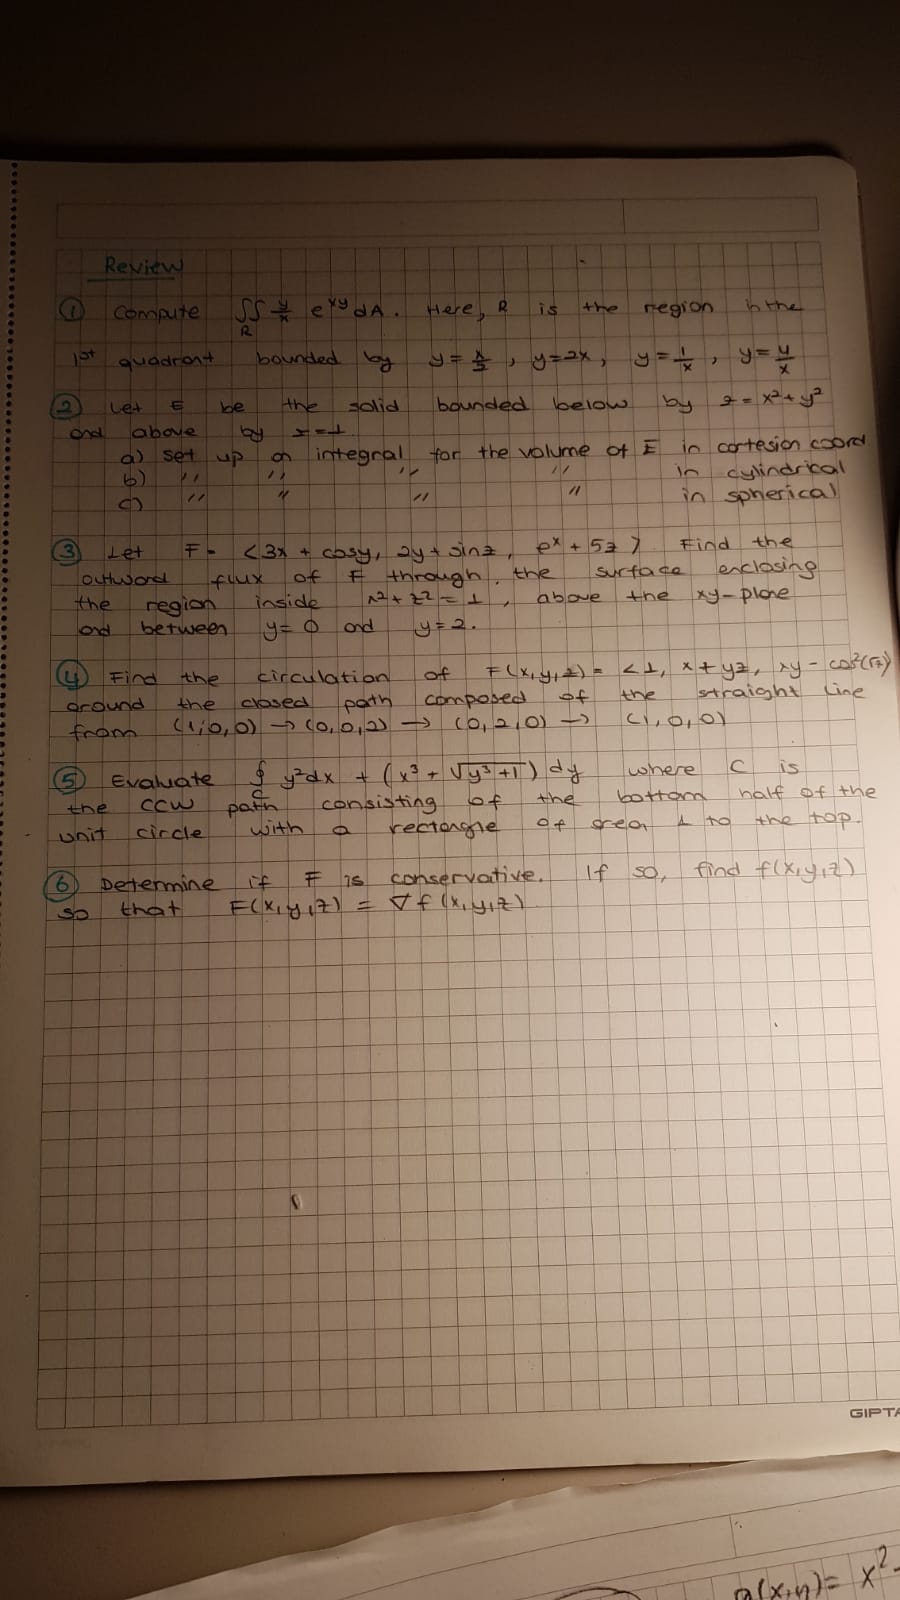 Review
① Compute ∬_R y/x e^xy dA. Here, R is the region in the
1st quadrant bounded by y = x/2, y=2x, y = 1/x, y = 4/x
② Let E be the solid bounded below by z = x²+y²
and above by z=1
a) set up an integral for the volume of E in cartesian coord
b) '' '' '' '' in cylindrical
c) '' '' '' '' in spherical
③ Let F = <3x + cosy, 2y + sinz, e^x + 5z> Find the
outward flux of F through the surface enclosing
the region inside x²+z²=1, above the xy-plane
and between y=0 and y=2.
④ Find the circulation of F(x,y,z) = <1, x+yz, xy-cos²(√z)
around the closed path composed of the straight line
from (1,0,0) → (0,0,2) → (0,2,0) → (1,0,0)
⑤ Evaluate ∮_C y²dx + (x³ + √(y³+1)) dy where C is
the CCW path consisting of the bottom half of the
unit circle with a rectangle of area 1 to the top.
⑥ Determine if F is conservative. If so, find f(x,y,z)
so that F(x,y,z) = ∇f(x,y,z)
GIPTA
g(x,y)= x²-